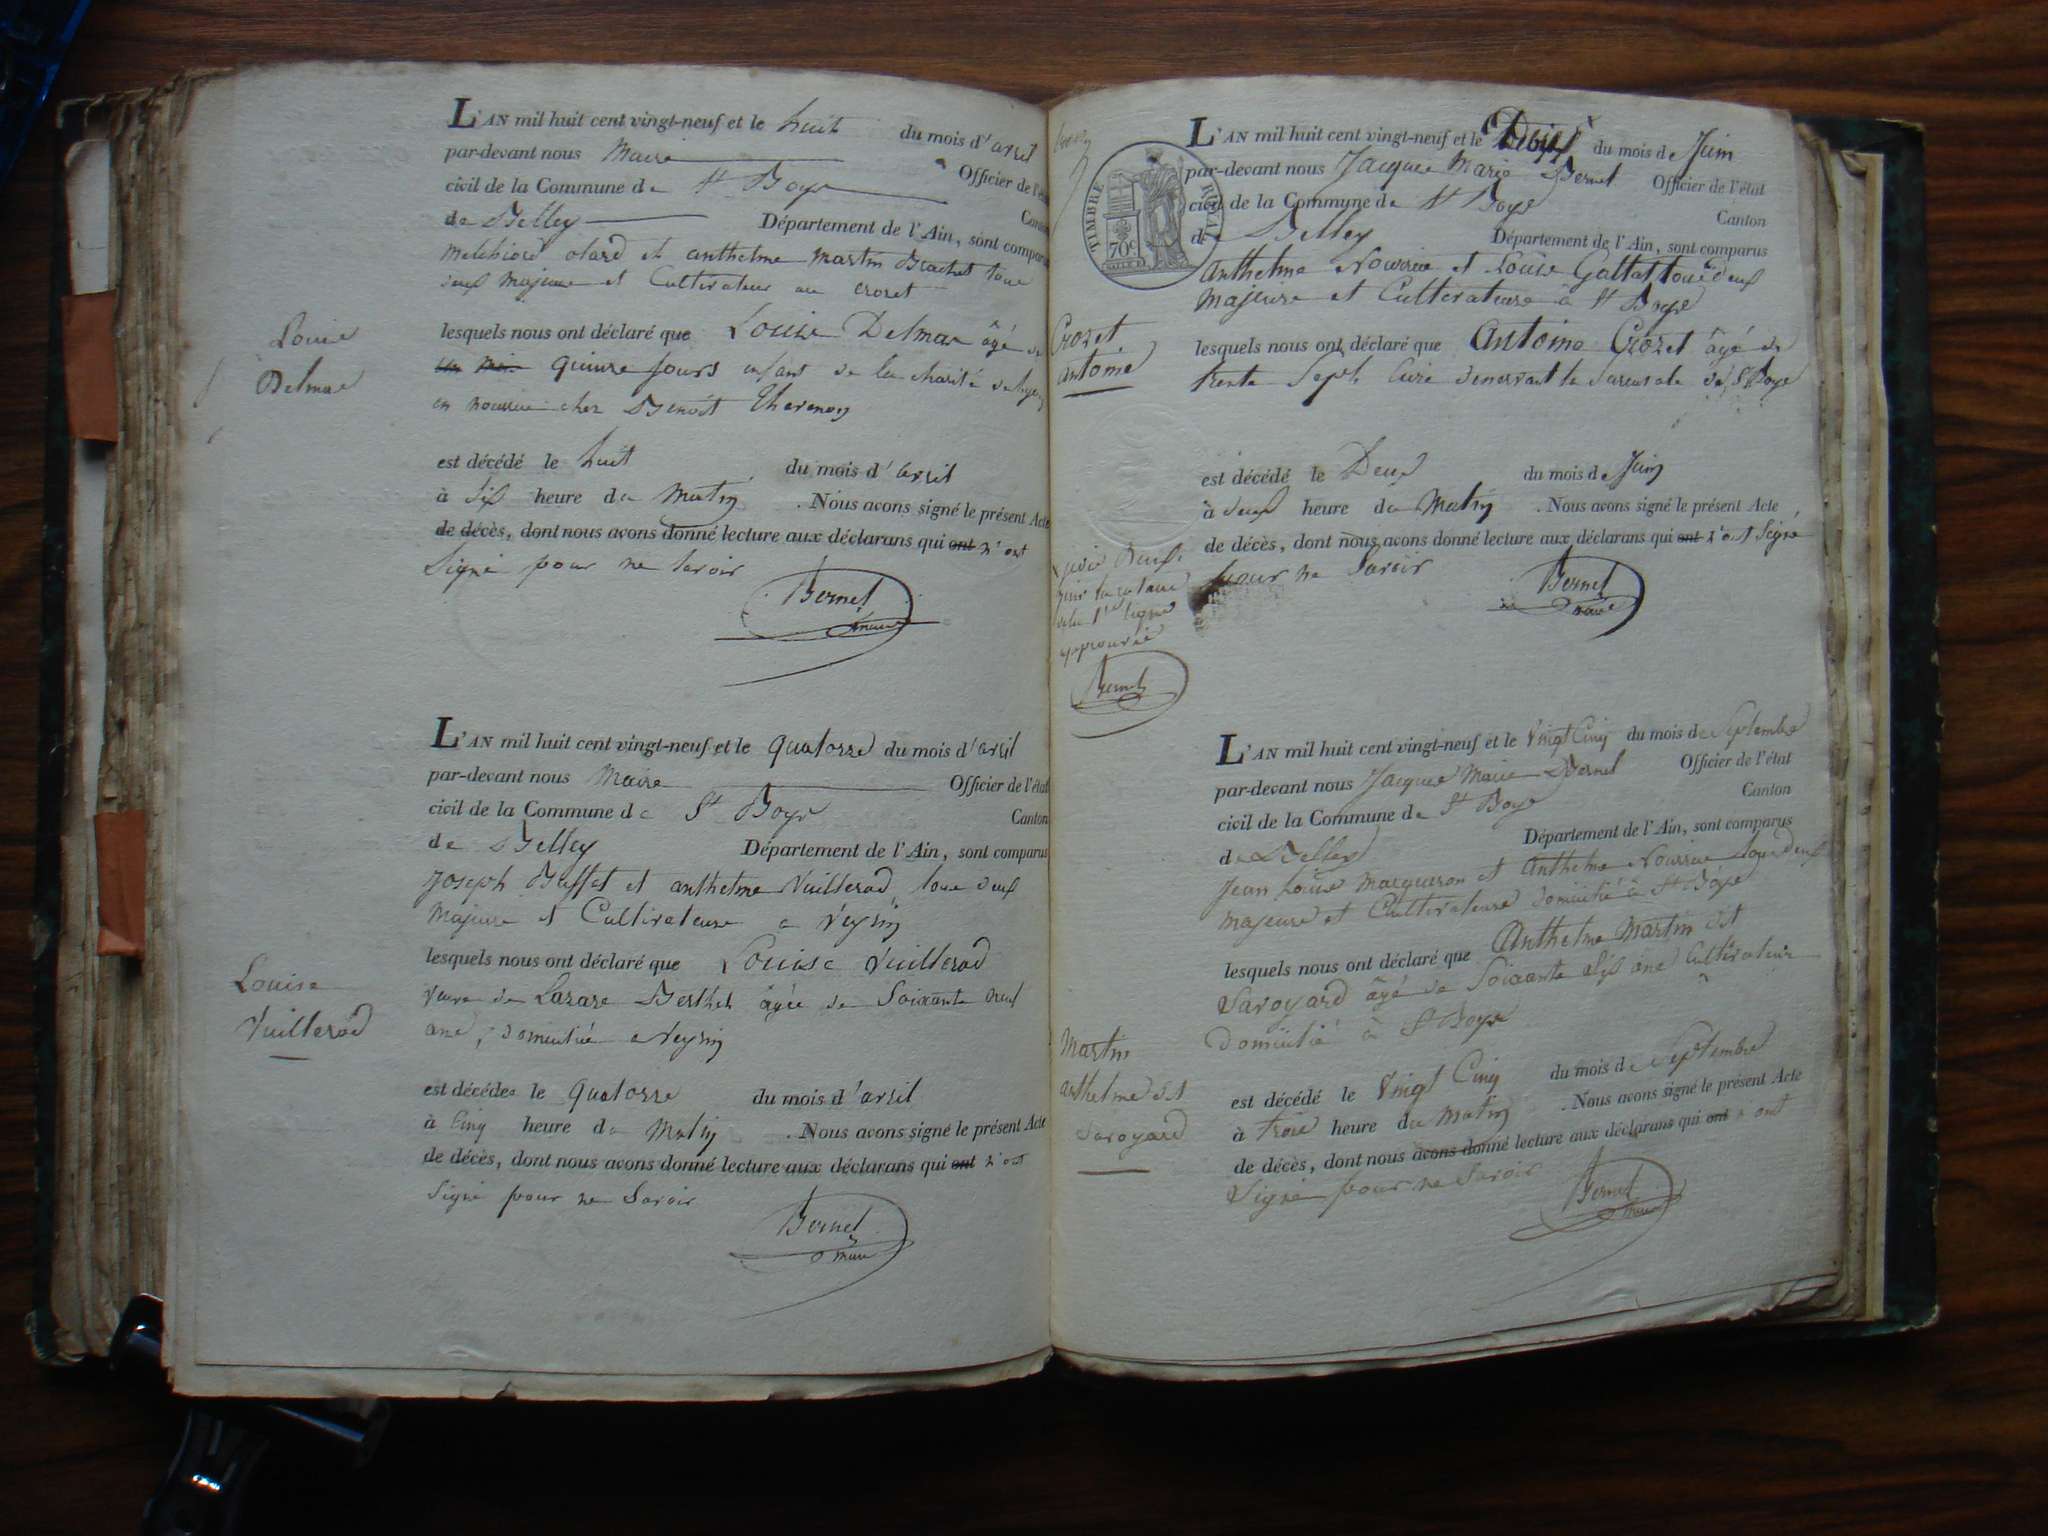 L'AN mil huit cent vingt-neuf et le huit du mois d'avril
par-devant nous Maire Officier de l'état
civil de la Commune de St Boys Canton
de Belley Département de l'Ain, sont comparus
melchiord olard et anthelme martin Brachet tous
deux majeurs et Cultivateurs au crozet
Louise
Delmas
lesquels nous ont déclaré que Louise Delmas âgé de
un mois quinze jours enfant de la charité de
en nourrice chez Benoit Thevenon
est décédé le huit du mois d'avril
à Six heure du Matin . Nous avons signé le présent Acte
de décès, dont nous avons donné lecture aux déclarans qui ont n'ont
Signé pour ne Savoir
Bernet
maire
L'AN mil huit cent vingt-neuf et le quatorze du mois d'avril
par-devant nous Maire Officier de l'état
civil de la Commune de St Boys Canton
de Belley Département de l'Ain, sont comparus
Joseph Buffet et anthelme Vuillerod tous deux
Majeurs et Cultivateurs a Veyrin
Louise
Vuillerod
lesquels nous ont déclaré que Louise Vuillerod
veuve de Lazare Berthet âgée de Soixante deux
ans, domicilié a Veyrin
est décédée le quatorze du mois d'avril
à Cinq heure du Matin . Nous avons signé le présent Acte
de décès, dont nous avons donné lecture aux déclarans qui ont n'ont
Signé pour ne Savoir
Bernet
maire
TIMBRE ROYAL
70c
L'AN mil huit cent vingt-neuf et le Deux du mois de Juin
par-devant nous Jacques Marie Bernet Officier de l'état
civil de la Commune de St Boys Canton
de Belley Département de l'Ain, sont comparus
Anthelme Nourrice et Louis Gallat tous deux
majeurs et Cultivateurs à St Boys
Crozet
antoine
lesquels nous ont déclaré que Antoine Crozet âgé de
trente Sept Curé desservant la Sucursale de St Boys
est décédé le Deux du mois de Juin
à deux heure du Matin . Nous avons signé le présent Acte
de décès, dont nous avons donné lecture aux déclarans qui ont n'ont Signé
pour ne Savoir
Bernet
maire
ligne
approuvée
Bernet
L'AN mil huit cent vingt-neuf et le Vingt Cinq du mois de Septembre
par-devant nous Jacques Marie Bernet Officier de l'état
civil de la Commune de St Boys Canton
de Belley Département de l'Ain, sont comparus
Jean Louis Macquiron et Anthelme Nourrice tous deux
majeurs et Cultivateurs domicilié à St Boys
lesquels nous ont déclaré que Anthelme Martin dit
Savoyard âgé de Soixante Six ans Cultivateur
domicilié à St Boys
Martin
anthelme dit
Savoyard
est décédé le Vingt Cinq du mois de Septembre
à trois heure du Matin . Nous avons signé le présent Acte
de décès, dont nous avons donné lecture aux déclarans qui ont n'ont
Signé pour ne Savoir
Bernet
maire